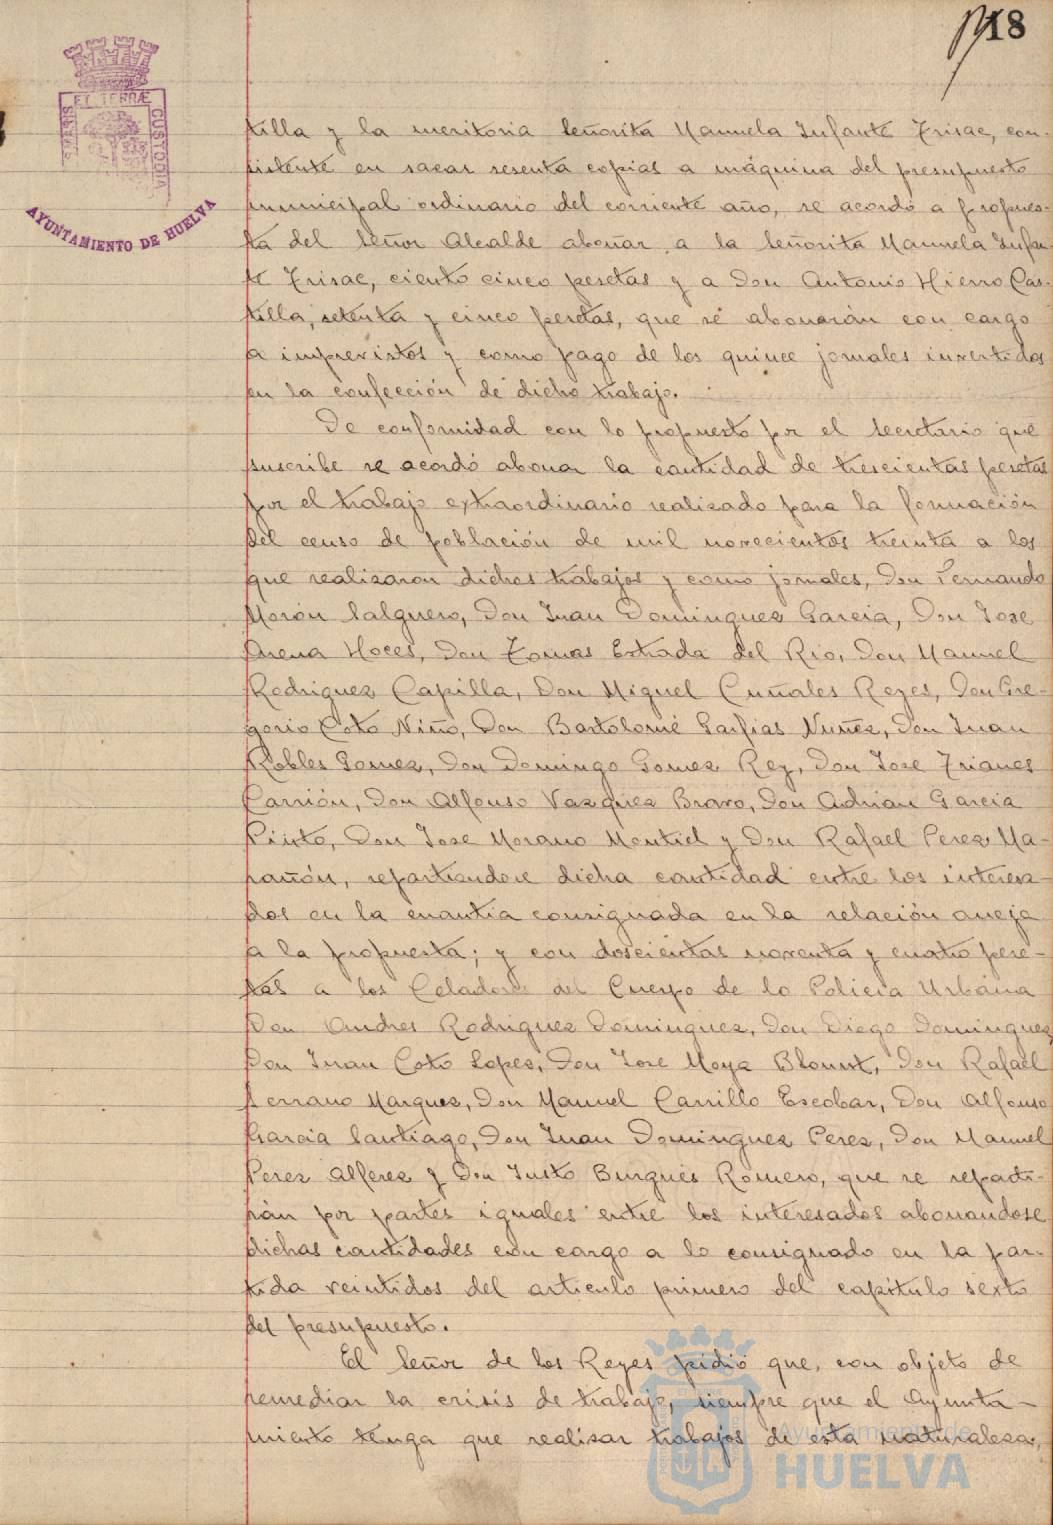 18
PORTUS MARIS
ET TERRÆ
CUSTODIA
AYUNTAMIENTO DE HUELVA
tilla y la meritoria Señorita Manuela Infante Frisac, con-
sistente en sacar sesenta copias a máquina del presupuesto
municipal ordinario del corriente año, se acordó a propues-
ta del Señor Alcalde abonar a la Señorita Manuela Infan-
te Frisac, ciento cinco pesetas y a Don Antonio Hierro Cas-
tilla, setenta y cinco pesetas, que se abonarán con cargo
a imprevistos y como pago de los quince jornales invertidos
en la confección de dicho trabajo.
De conformidad con lo propuesto por el Secretario que
suscribe se acordó abonar la cantidad de trescientas pesetas
por el trabajo extraordinario realizado para la formación
del censo de población de mil novecientos treinta a los
que realizaron dichos trabajos y como jornales, Don Fernando
Morón Salguero, Don Juan Dominguez Garcia, Don Jose
Arena Hoces, Don Tomas Estrada del Rio, Don Manuel
Rodriguez Capilla, Don Miguel Cuñales Reyes, Don Gre-
gorio Coto Niño, Don Bartolomé Garfias Nuñez, Don Juan
Robles Gomez, Don Domingo Gomez Rey, Don Jose Trianes
Carrión, Don Alfonso Vazquez Bravo, Don Adrian Garcia
Pinto, Don Jose Morano Montiel y Don Rafael Perez Ma-
rañón, repartiendose dicha cantidad entre los interesa-
dos en la cuantia consignada en la relación aneja
a la propuesta; y con doscientas noventa y cuatro pese-
tas a los Celadores del Cuerpo de la Policia Urbana
Don Andres Rodriguez Dominguez, Don Diego Dominguez
Don Juan Coto Lopez, Don Jose Moya Blount, Don Rafael
Serrano Marquez, Don Manuel Carrillo Escobar, Don Alfonso
Garcia Santiago, Don Juan Dominguez Perez, Don Manuel
Perez Alferez y Don Justo Burgués Romero, que se reparti-
rán por partes iguales entre los interesados abonandose
dichas cantidades con cargo a lo consignado en la par-
tida veintidos del articulo primero del capítulo sexto
del presupuesto.
El Señor de los Reyes pidió que, con objeto de
remediar la crisis de trabajo, siempre que el Ayunta-
miento tenga que realizar trabajos de esta naturaleza,
Ayuntamiento de
HUELVA